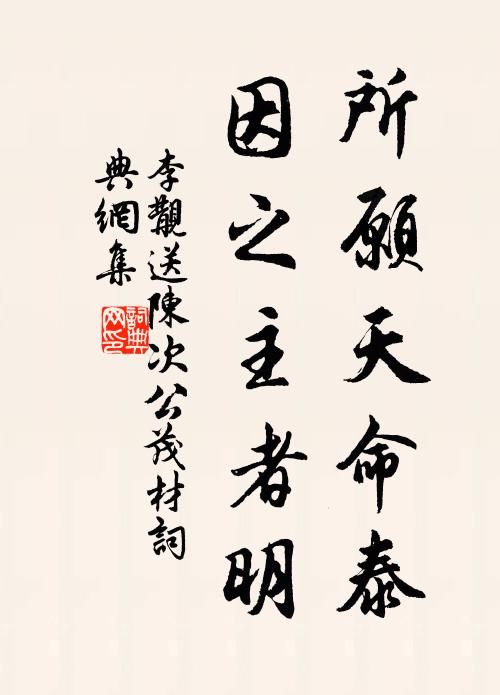 所願天命泰
因之主者明
李覯送陳次公茂材詞
典網集
詞典
网印